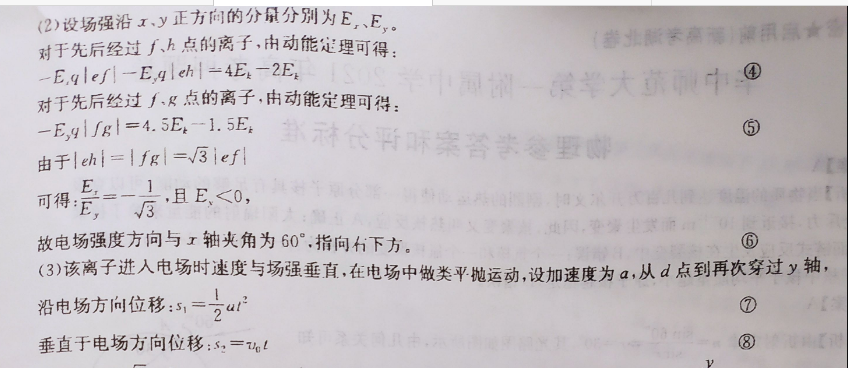 (2)设场强沿 x、y 正方向的分量分别为 Eₓ、Eᵧ。
对于先后经过 f、h 点的离子,由动能定理可得:
－Eₓq|ef|－Eᵧq|eh|＝4Eₖ－2Eₖ ④
对于先后经过 f、g 点的离子,由动能定理可得:
－Eᵧq|fg|＝4.5Eₖ－1.5Eₖ ⑤
由于|eh|＝|fg|＝√3|ef|
可得:Eₓ/Eᵧ＝－1/√3,且 Eᵧ<0,
故电场强度方向与 x 轴夹角为 60°,指向右下方。 ⑥
(3)该离子进入电场时速度与场强垂直,在电场中做类平抛运动,设加速度为 a,从 d 点到再次穿过 y 轴,
沿电场方向位移:s₁＝1/2at² ⑦
垂直于电场方向位移:s₂＝v₀t ⑧
y